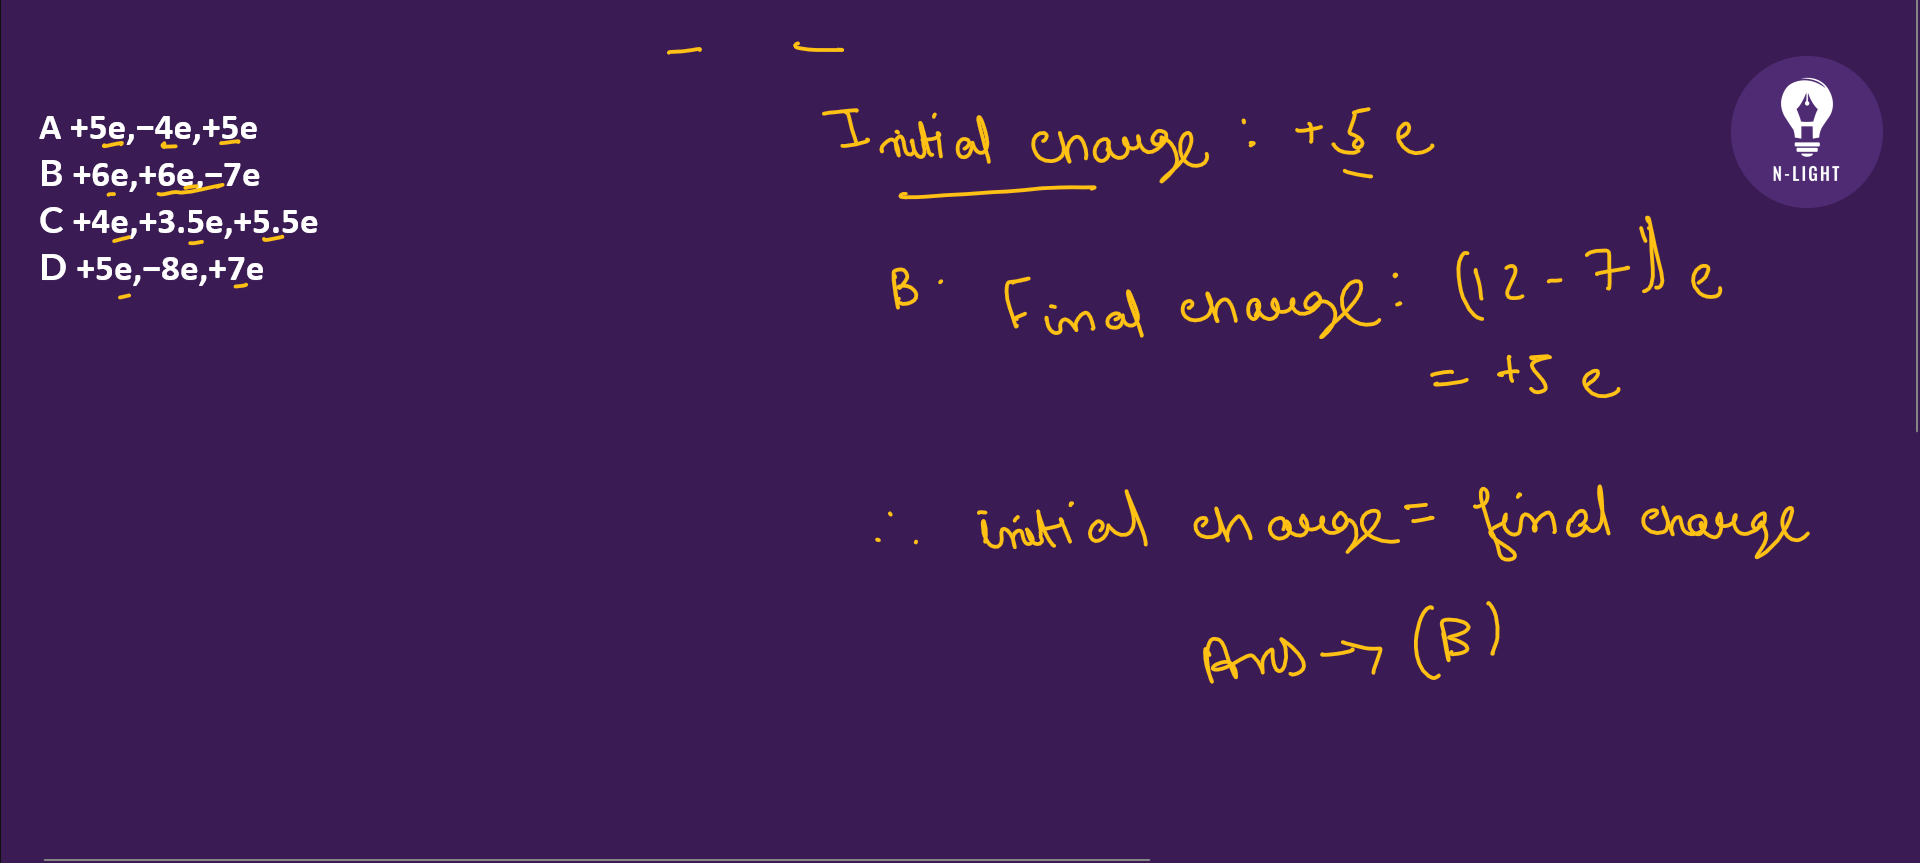 A +5e,−4e,+5e
B +6e,+6e,−7e
C +4e,+3.5e,+5.5e
D +5e,−8e,+7e
Initial charge : +5 e
B. Final charge : (12 - 7) e
= +5 e
∴ initial charge = final charge
Ans → (B)
N-LIGHT